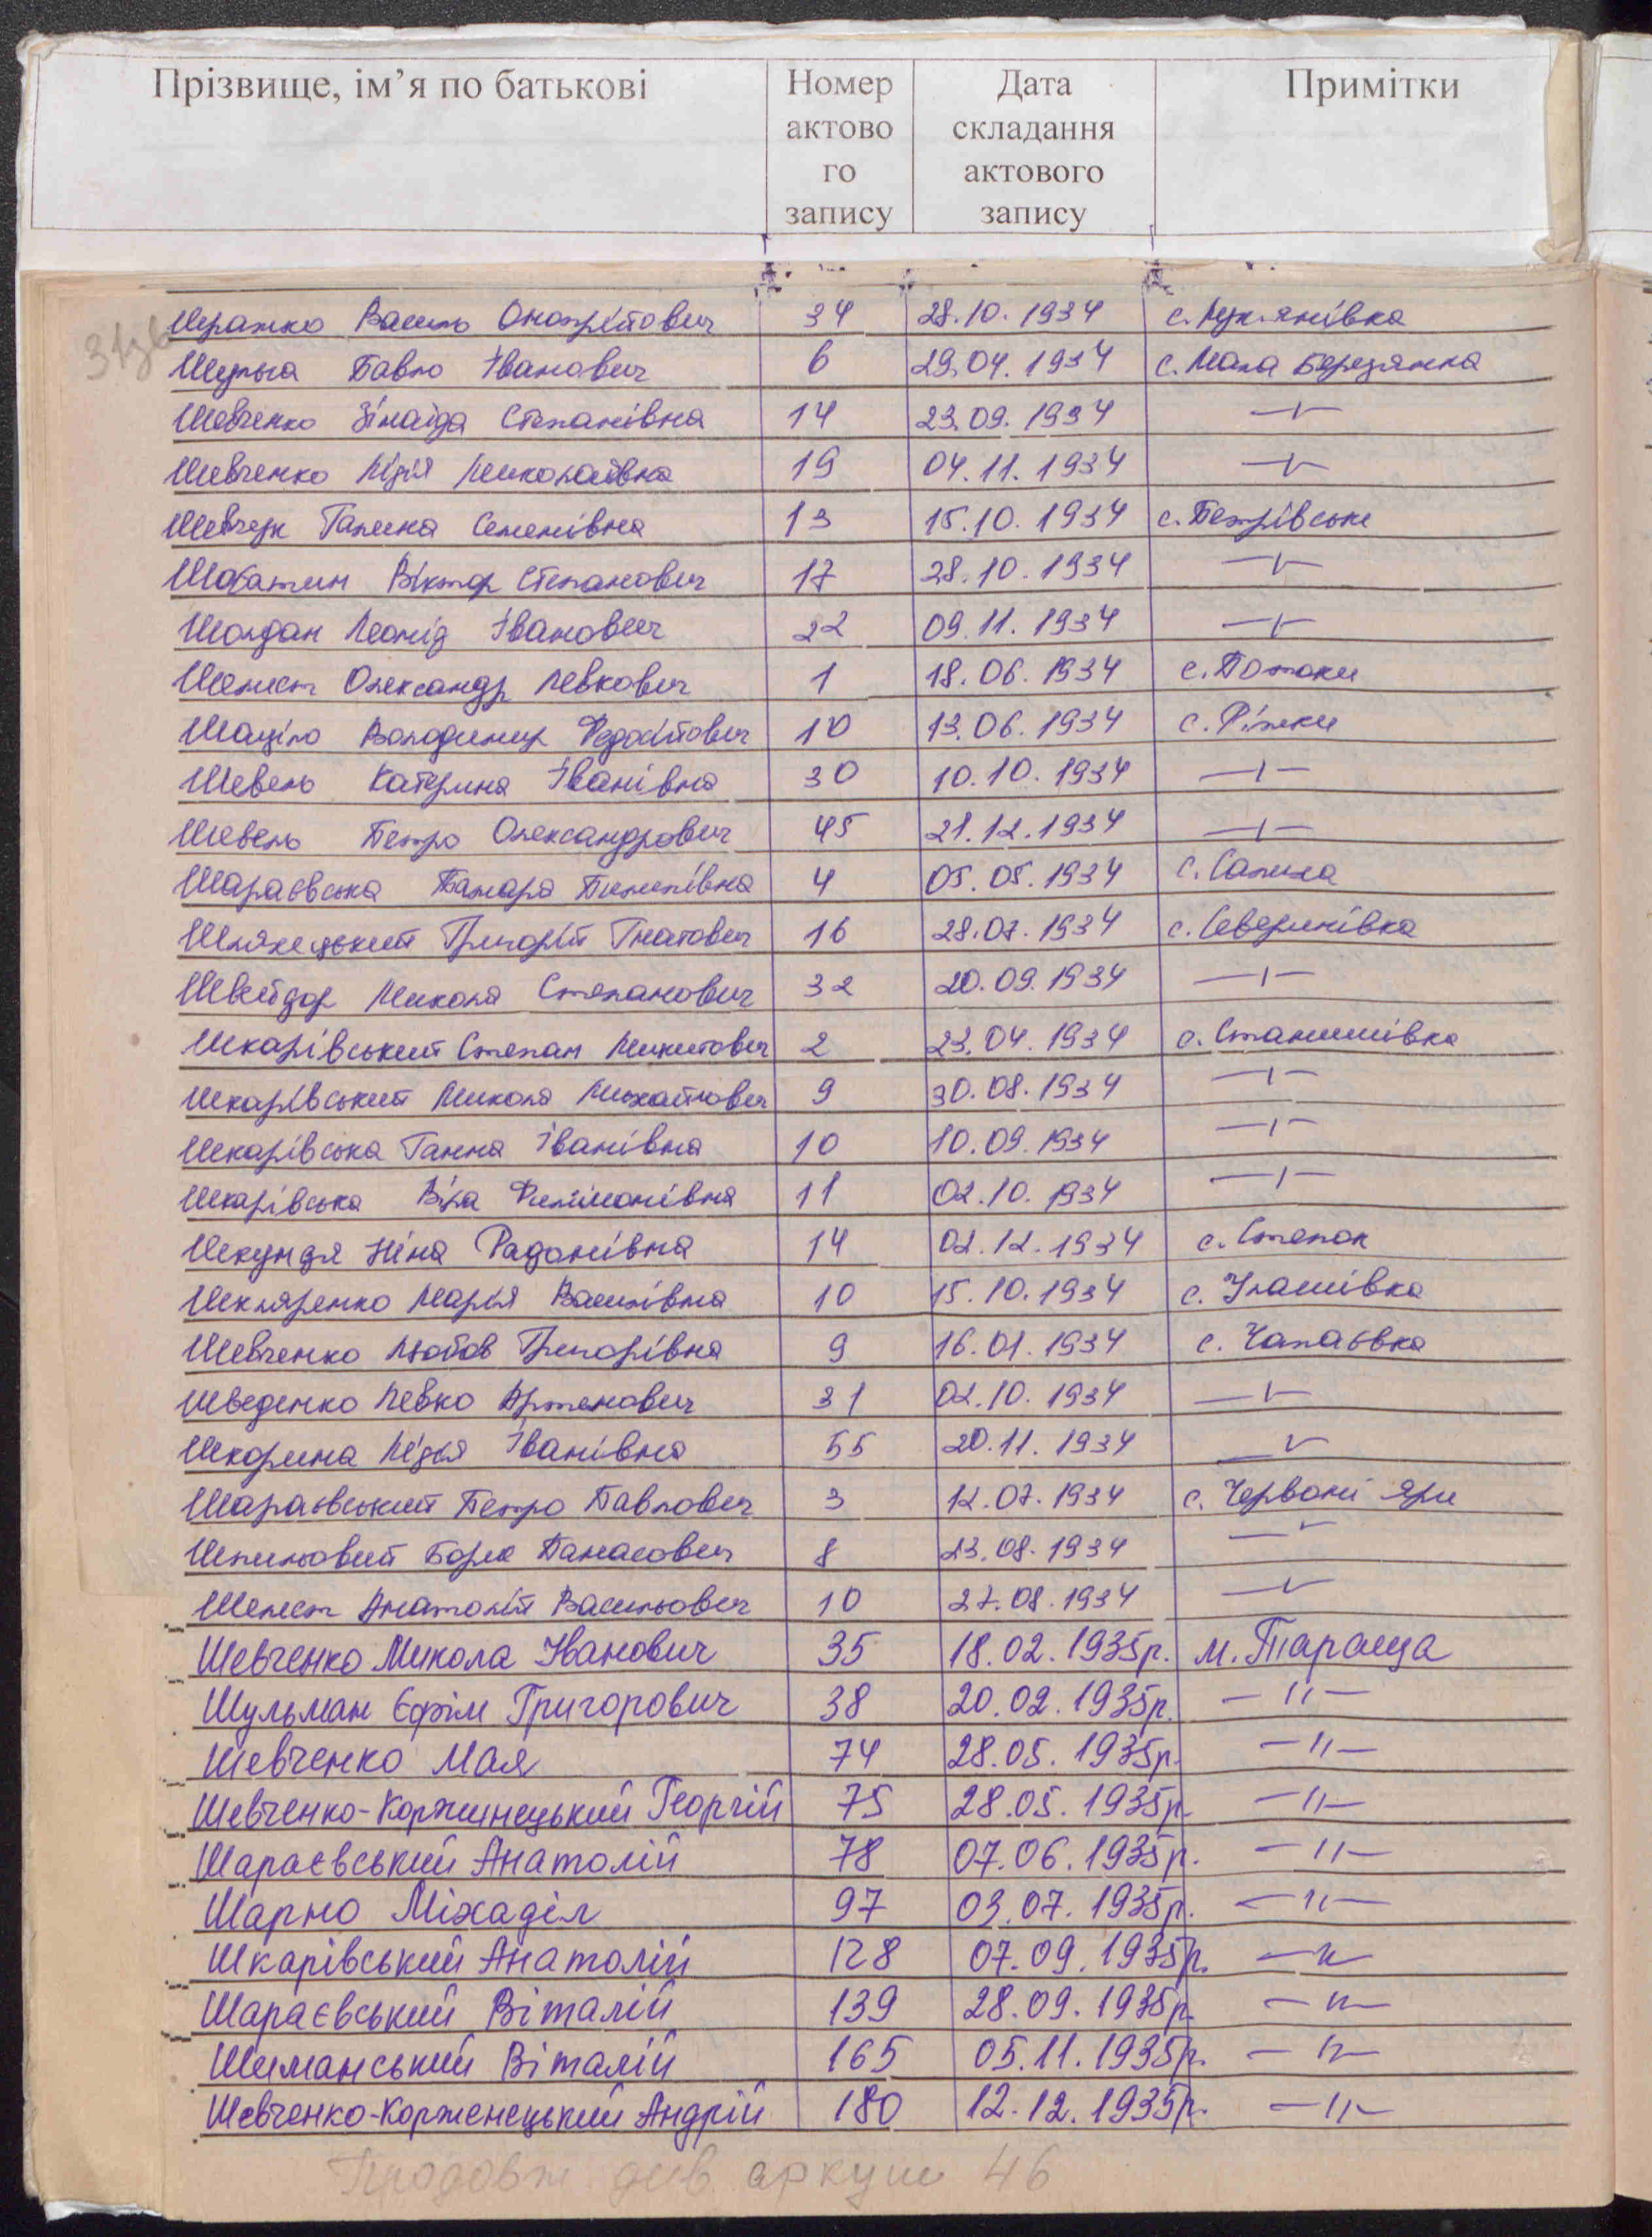 Прізвище, ім’я по батькові Номер актово го запису Дата складання актового запису Примітки
Василь Онопрійович 34 28.10.1934 с. Лук'янівка
Шульга Павло Іванович 6 29.04.1934 с. Мала Березянка
Шевченко Зінаїда Степанівна 14 23.09.1934 —"—
Шевченко Лідія Миколаївна 19 04.11.1934 —"—
Шевчук Галина Семенівна 13 15.10.1934 с. Петрівське
Віктор Степанович 17 28.10.1934 —"—
Шолдан Леонід Іванович 22 09.11.1934 —"—
Шелест Олександр Левкович 1 18.06.1934 с. Потоки
Шаціло Володимир Федосійович 10 13.06.1934 с. Ріжки
Шевель Катерина Іванівна 30 10.10.1934 —"—
Шевель Петро Олександрович 45 21.12.1934 —"—
Шараєвська Тамара Пилипівна 4 05.05.1934 с. Салиха
Шляхецький Григорій Гнатович 16 28.07.1934 с. Северинівка
Швейдор Микола Степанович 32 20.09.1934 —"—
Шкарівський Степан Микитович 2 23.04.1934 с. Станишівка
Шкарівський Микола Михайлович 9 30.08.1934 —"—
Шкарівська Ганна Іванівна 10 10.09.1934 —"—
Шкарівська Віра Филимонівна 11 02.10.1934 —"—
Шкундя Ніна Радонівна 14 02.12.1934 с. Степок
Шкляренко Марія Василівна 10 15.10.1934 с. Улашівка
Шевченко Любов Григорівна 9 16.01.1934 с. Чапаєвка
Шведенко Левко Артемович 31 02.10.1934 —"—
Шкорина Лідія Іванівна 55 20.11.1934 —"—
Шараєвський Петро Павлович 3 12.07.1934 с. Червоні Яри
Шпильовий Борис Панасович 8 23.08.1934 —"—
Шелест Анатолій Васильович 10 27.08.1934 —"—
Шевченко Микола Іванович 35 18.02.1935р. м. Тараща
Шульман Єфім Григорович 38 20.02.1935р. —"—
Шевченко Мая 74 28.05.1935р. —"—
Шевченко-Коржинецький Георгій 75 28.05.1935р. —"—
Шараєвський Анатолій 78 07.06.1935р. —"—
Шарно Міхаділ 97 03.07.1935р. —"—
Шкарівський Анатолій 128 07.09.1935р. —"—
Шараєвський Віталій 139 28.09.1935р. —"—
Шиманський Віталій 165 05.11.1935р. —"—
Шевченко-Корженецький Андрій 180 12.12.1935р. —"—
Продовж. див. аркуш 46